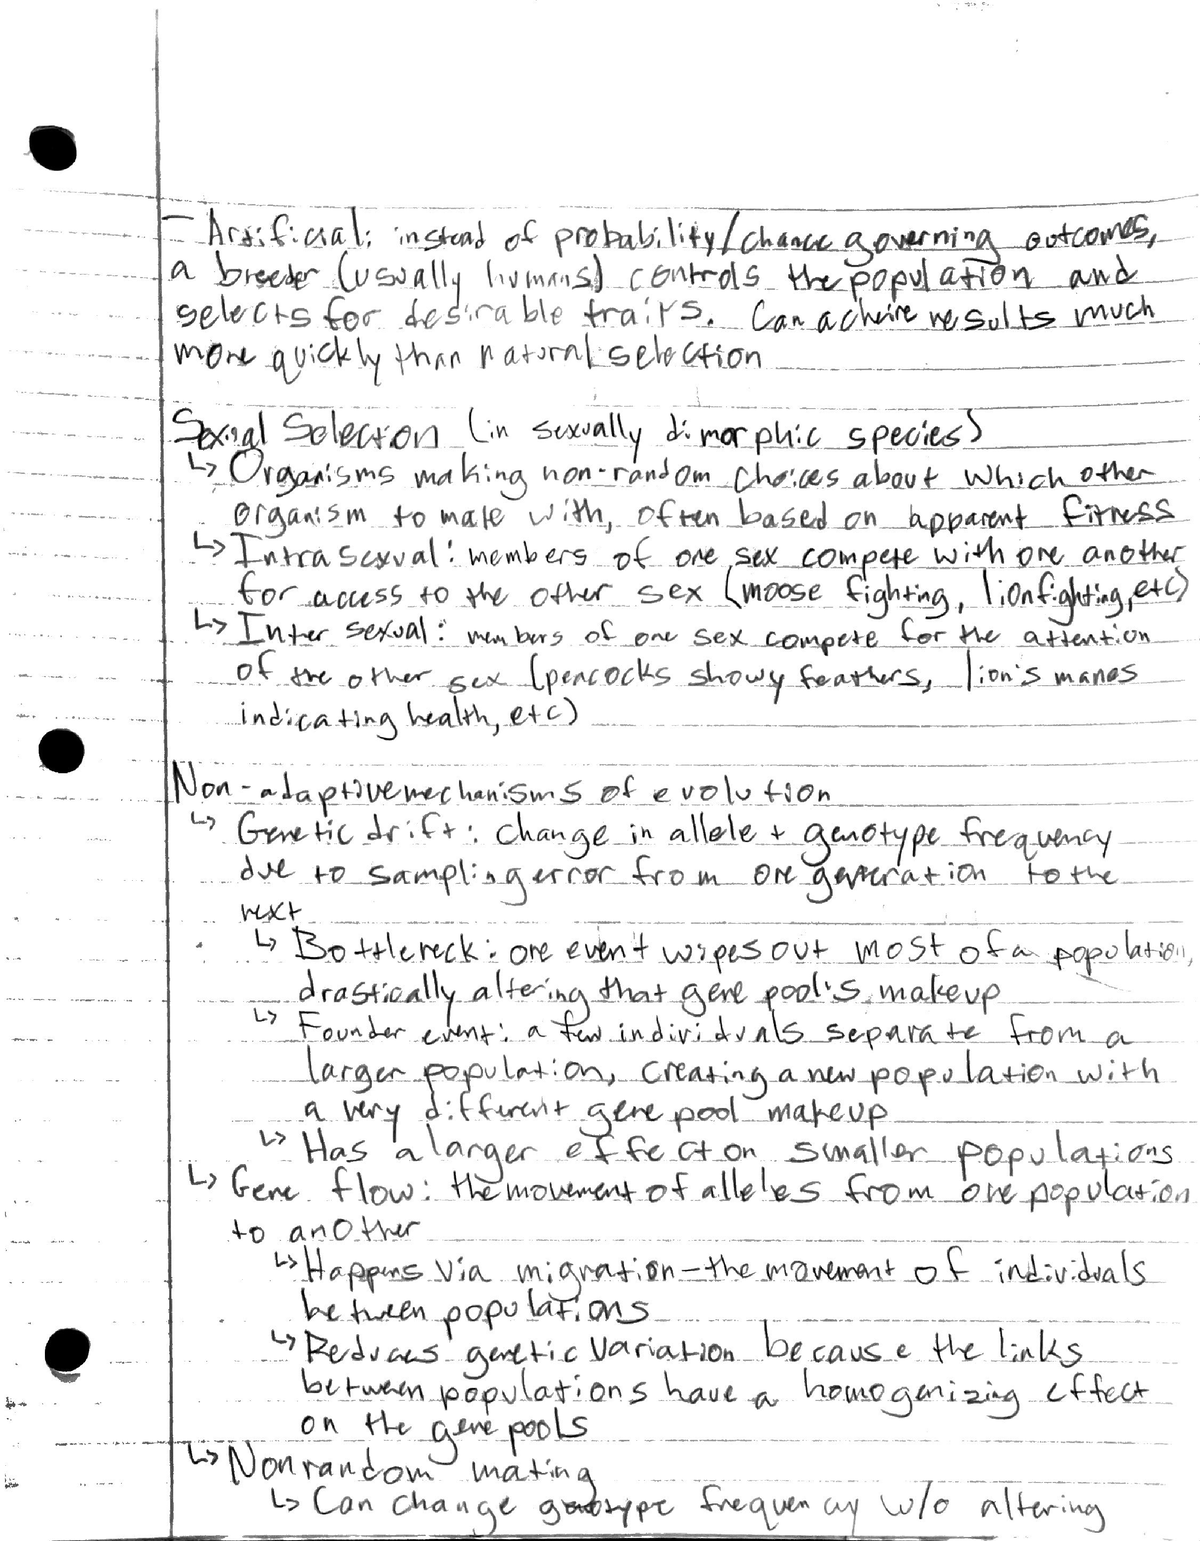 - Artificial: instead of probability/chance governing outcomes,
a breeder (usually humans) controls the population and
selects for desirable traits. Can acheive results much
more quickly than natural selection
Sexual Selection (in sexually dimorphic species)
↳ Organisms making non-random choices about which other
organism to mate with, often based on apparent fitness
↳ Intrasexual: members of one sex compete with one another
for access to the other sex (moose fighting, lion fighting, etc)
↳ Inter sexual: members of one sex compete for the attention
of the other sex (peacocks showy feathers, lion's manes
indicating health, etc)
Non-adaptive mechanisms of evolution
↳ Genetic drift: change in allele + genotype frequency
due to sampling error from one generation to the
next
↳ Bottleneck: one event wipes out most of a population,
drastically altering that gene pool's makeup
↳ Founder event: a few individuals separate from a
larger population, creating a new population with
a very different gene pool makeup
↳ Has a larger effect on smaller populations
↳ Gene flow: the movement of alleles from one population
to another
↳ Happens via migration - the movement of individuals
between populations
↳ Reduces genetic variation because the links
between populations have a homogenizing effect
on the gene pools
↳ Nonrandom mating
↳ Can change genotype frequency w/o altering